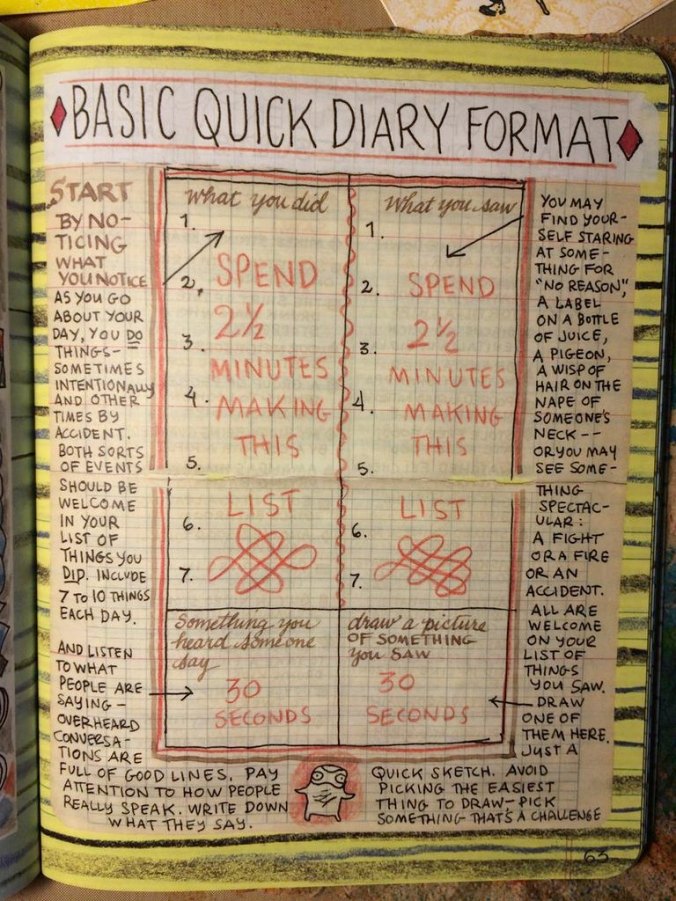 BASIC QUICK DIARY FORMAT
START
BY NO-
TICING
WHAT
YOU NOTICE
AS YOU GO
ABOUT YOUR
DAY, YOU DO
THINGS-
SOMETIMES
INTENTIONALLY
AND OTHER
TIMES BY
ACCIDENT.
BOTH SORTS
OF EVENTS
SHOULD BE
WELCOME
IN YOUR
LIST OF
THINGS YOU
DID. INCLUDE
7 TO 10 THINGS
EACH DAY.
AND LISTEN
TO WHAT
PEOPLE ARE
SAYING-
OVERHEARD
CONVERSA-
TIONS ARE
FULL OF GOOD LINES. PAY
ATTENTION TO HOW PEOPLE
REALLY SPEAK. WRITE DOWN
WHAT THEY SAY.
What you did
1.
2.
SPEND
2½
3.
MINUTES
4.
MAKING
THIS
5.
LIST
6.
7.
Something you
heard someone
say
30
SECONDS
What you saw
1.
2.
SPEND
2½
3.
MINUTES
4.
MAKING
THIS
5.
LIST
6.
7.
draw a picture
OF SOMETHING
you SAW
30
SECONDS
YOU MAY
FIND YOUR-
SELF STARING
AT SOME-
THING FOR
"NO REASON",
A LABEL
ON A BOTTLE
OF JUICE,
A PIGEON,
A WISP OF
HAIR ON THE
NAPE OF
SOMEONE'S
NECK--
OR YOU MAY
SEE SOME-
THING
SPECTAC-
ULAR:
A FIGHT
OR A FIRE
OR AN
ACCIDENT.
ALL ARE
WELCOME
ON YOUR
LIST OF
THINGS
YOU SAW.
DRAW
ONE OF
THEM HERE.
JUST A
QUICK SKETCH. AVOID
PICKING THE EASIEST
THING TO DRAW-PICK
SOMETHING THAT'S A CHALLENGE
63